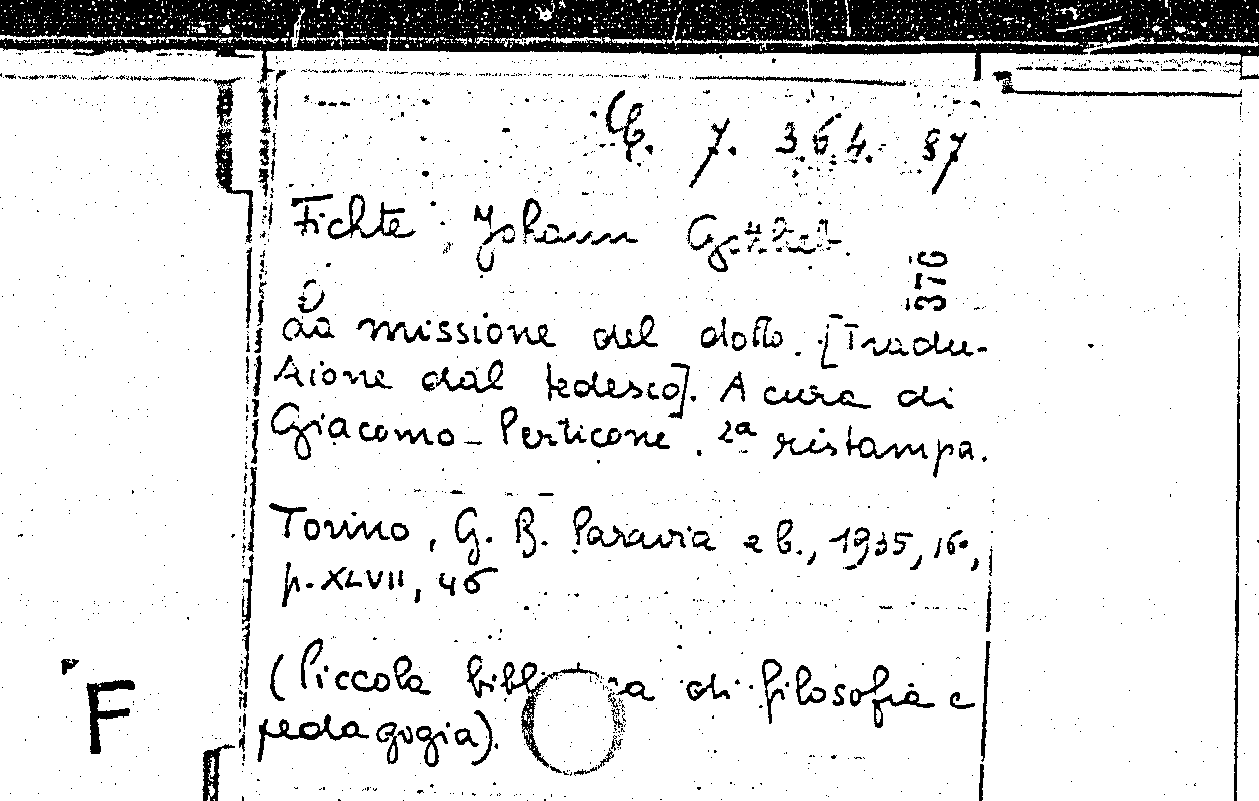 7. 364. 87
Fichte, Johann Gottlieb.
376
La missione del dotto. [Tradu-
zione dal tedesco]. A cura di
Giacomo Perticone. 2ª ristampa.
Torino, G. B. Paravia e b., 1935, 16°,
p. XLVII, 46
(Piccola di filosofia e
pedagogia).
F